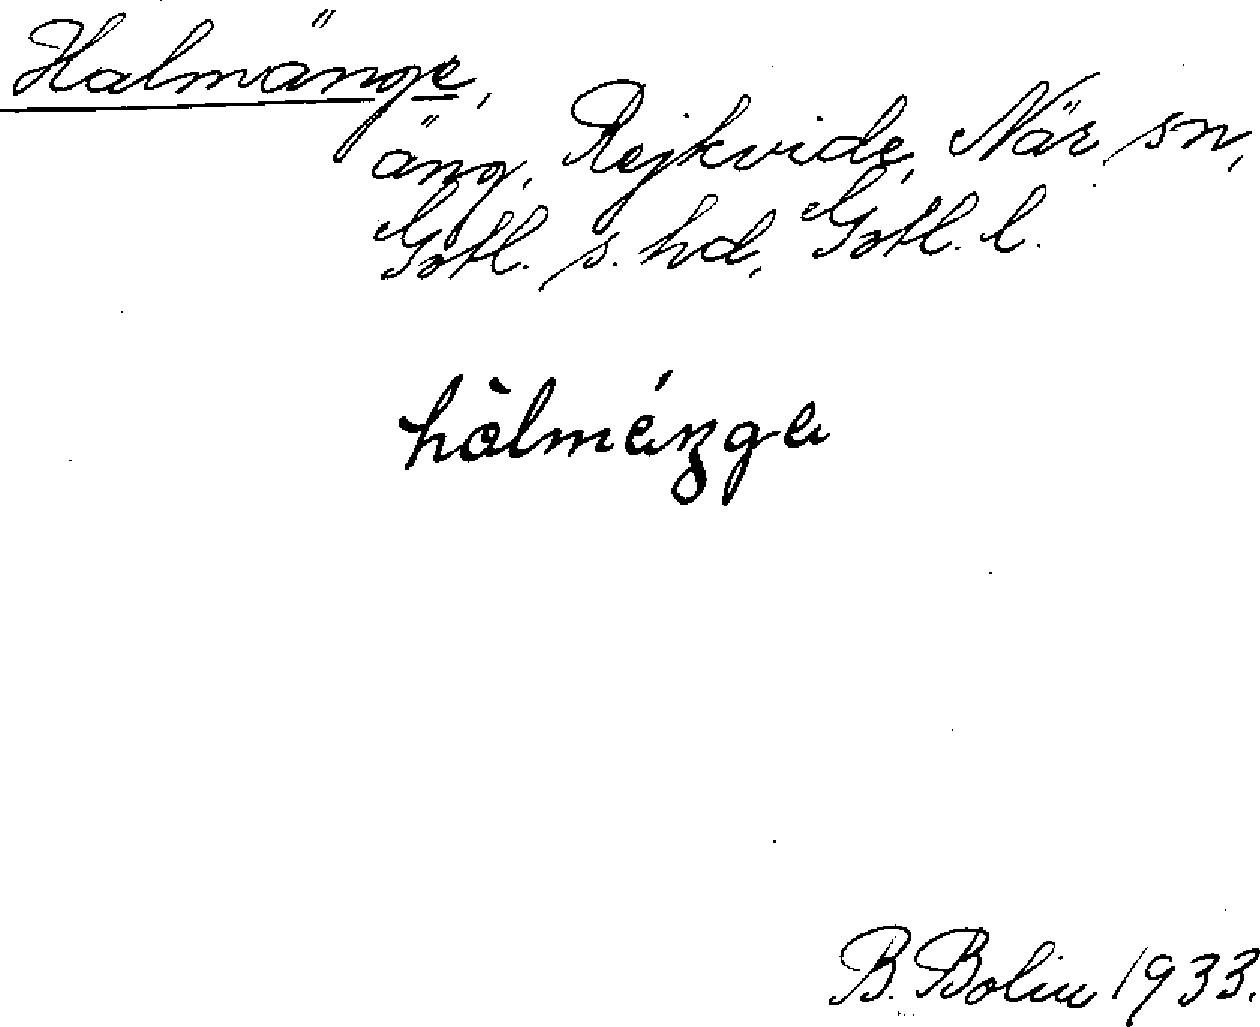 Halmänge,
äng, Rejkvide, När sn,
Gotl. s. hd, Gotl. l.
hàlmén̡ge
B. Bolin 1933.